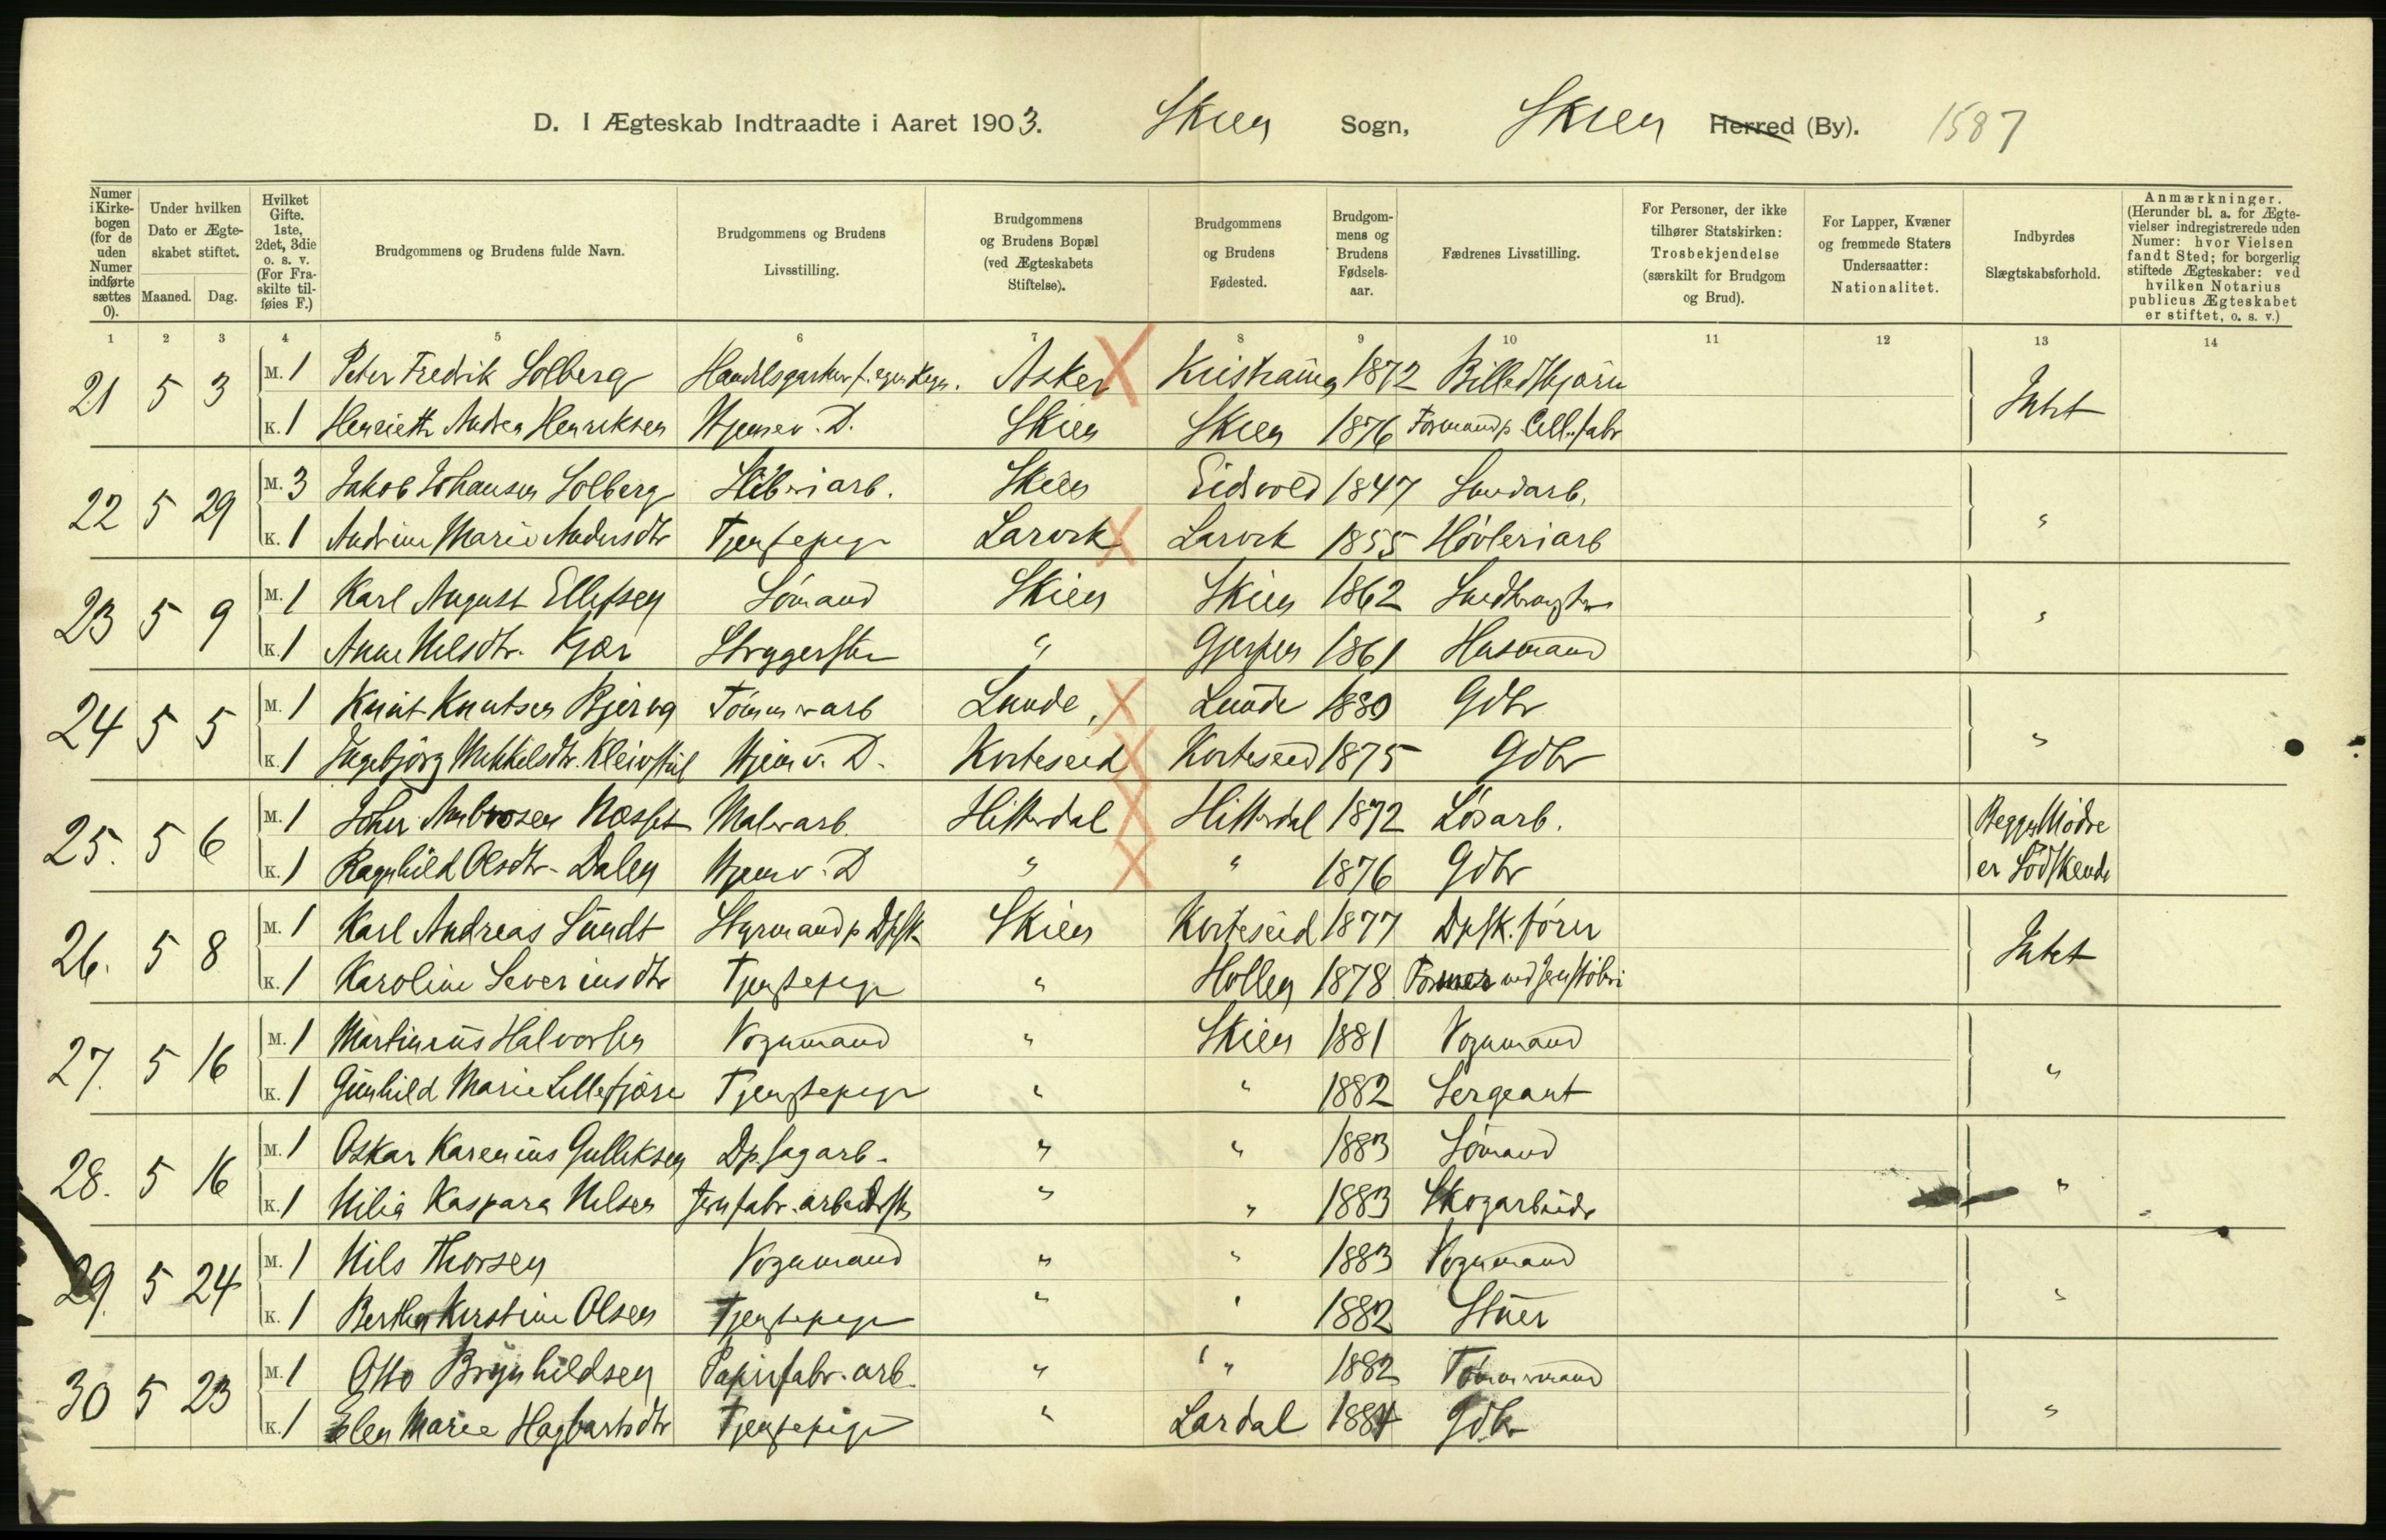 D. I Ægteskab Indtraadte i Aaret 1903. Skien Sogn, Skien Herred (By). 1587
Numer i Kirkebogen (for de uden Numer indførte sættes 0). Under hvilken Dato er Ægteskabet stiftet. Maaned. Dag. Hvilket Gifte. 1ste, 2det, 3die o. s. v. (For Fraskilte tilføies F.) Brudgommens og Brudens fulde Navn. Brudgommens og Brudens Livsstilling. Brudgommens og Brudens Bopæl (ved Ægteskabets Stiftelse). Brudgommens og Brudens Fødested. Brudgommens og Brudens Fødselsaar. Fædrenes Livsstilling. For Personer, der ikke tilhører Statskirken: Trosbekjendelse (særskilt for Brudgom og Brud). For Lapper, Kvæner og fremmede Staters Undersaatter: Nationalitet. Indbyrdes Slægtskabsforhold. Anmærkninger. (Herunder bl. a. for Ægtevielser indregistrerede uden Numer: hvor Vielsen fandt Sted; for borgerlig stiftede Ægteskaber: ved hvilken Notarius publicus Ægteskabet er stiftet, o. s. v.)
1 2 3 4 5 6 7 8 9 10 11 12 13 14
21 5 3 M. 1 Peter Fredrik Solberg Handelsgartner f. egen Regn. Asker Kristiania 1872 Billedskjærer Intet
K. 1 Henriette Andrea Henriksen Hjemmev. D. Skien Skien 1876 Formand p. Cell. fabr
22 5 29 M. 3 Jakob Johansen Solberg Sliberiarb. Skien Eidsvold 1847 "
K. 1 Andrine Marie Andersdtr Tjenestepige Larvik Larvik 1855 Høvleriarb
23 5 9 M. 1 Karl August Ellefsen Sømand Skien Skien 1862 "
K. 1 Anne Nelsdtr. Kjær Strygerske " Gjerpen 1861 Husmand
24 5 5 M. 1 Knut Knutsen Bjerva Tømmerarb Lunde, Lunde 1880 Gdbr "
K. 1 Ingebjörg Mikkelsdtr. Kleivstul Hjemv. D. Kviteseid Kviteseid 1875 Gdbr
25. 5 6 M. 1 Ambrosen Næsset Malerarb Hitterdal Hitterdal 1872 Løsarb. Begges Mödre
K. 1 Ragnhild Olsdtr. Dalen Hjemv. D " " 1876 Gdbr er Södskende
26. 5 8 M. 1 Karl Andreas Sundt Styrmand p. Dpsk Skien Kviteseid 1877 Dpsk. fører Intet
K. 1 Karoline Severinsdtr Tjenestepige " Hollen 1878 Former ved Jernstøberi
27. 5 16 M. 1 Martinius Halvorsen Vognmand " Skien 1881 Vognmand "
K. 1 Gunhild Marie Lillefjære Tjenestepige " " 1882 Sergeant
28. 5 16 M. 1 Oskar Karenius Gulliksen Dp. sagarb. " " 1883 Sømand "
K. 1 Nilia Kaspara Nilsen fabr. arbeiderske " " 1883 Skogarbeider
29. 5 24 M. 1 Nils Thorsen Vognmand " " 1883 Vognmand "
K. 1 Berthe Kirstine Olsen Tjenestepige " " 1882 Stuer
30 5 23 M. 1 Otto Brynhildsen Papirfabr. arb. " " 1882 Tømmermand "
K. 1 Elen Marie Hagbartsdtr Tjenestepige " Lardal 1884 Gdbr